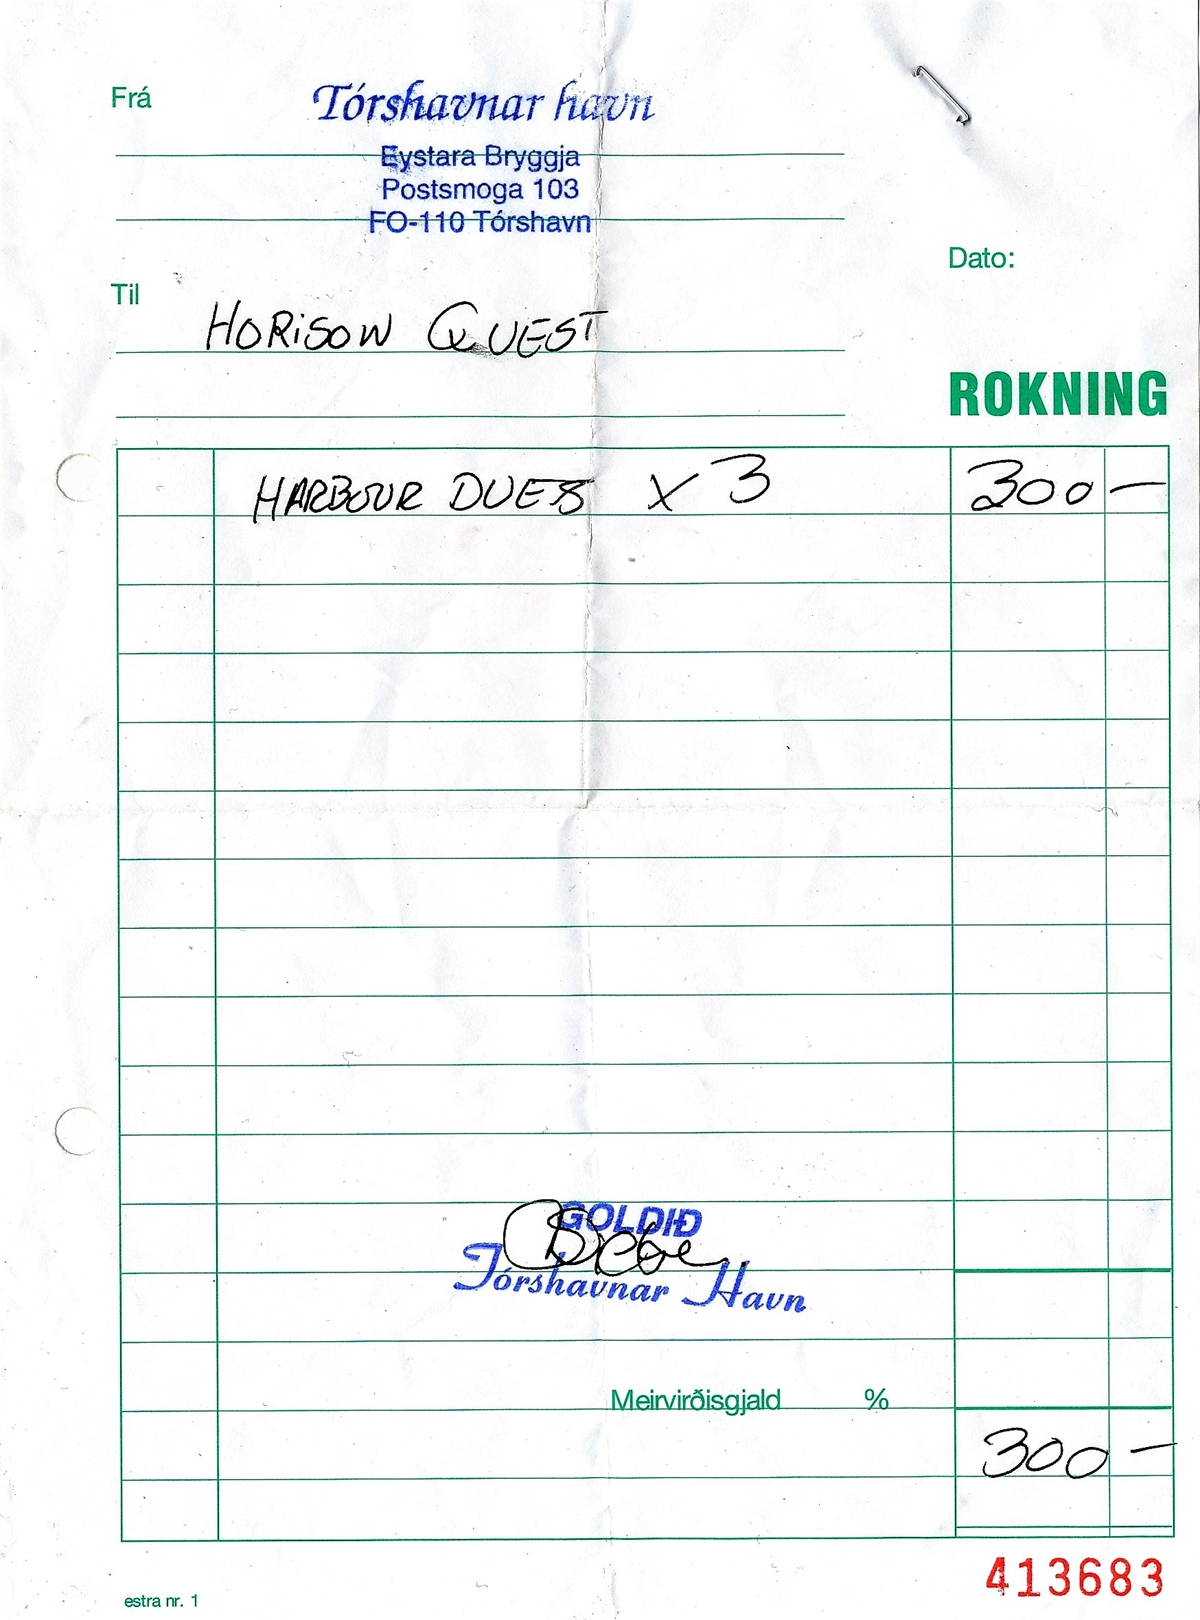 Frá
Tórshavnar havn
Eystara Bryggja
Postsmoga 103
FO-110 Tórshavn
Dato:
Til
HORISON QUEST
ROKNING
HARBOUR DUES X 3 300 —
GOLDIÐ
Tórshavnar Havn
Meirvirðisgjald %
300 —
413683
estra nr. 1